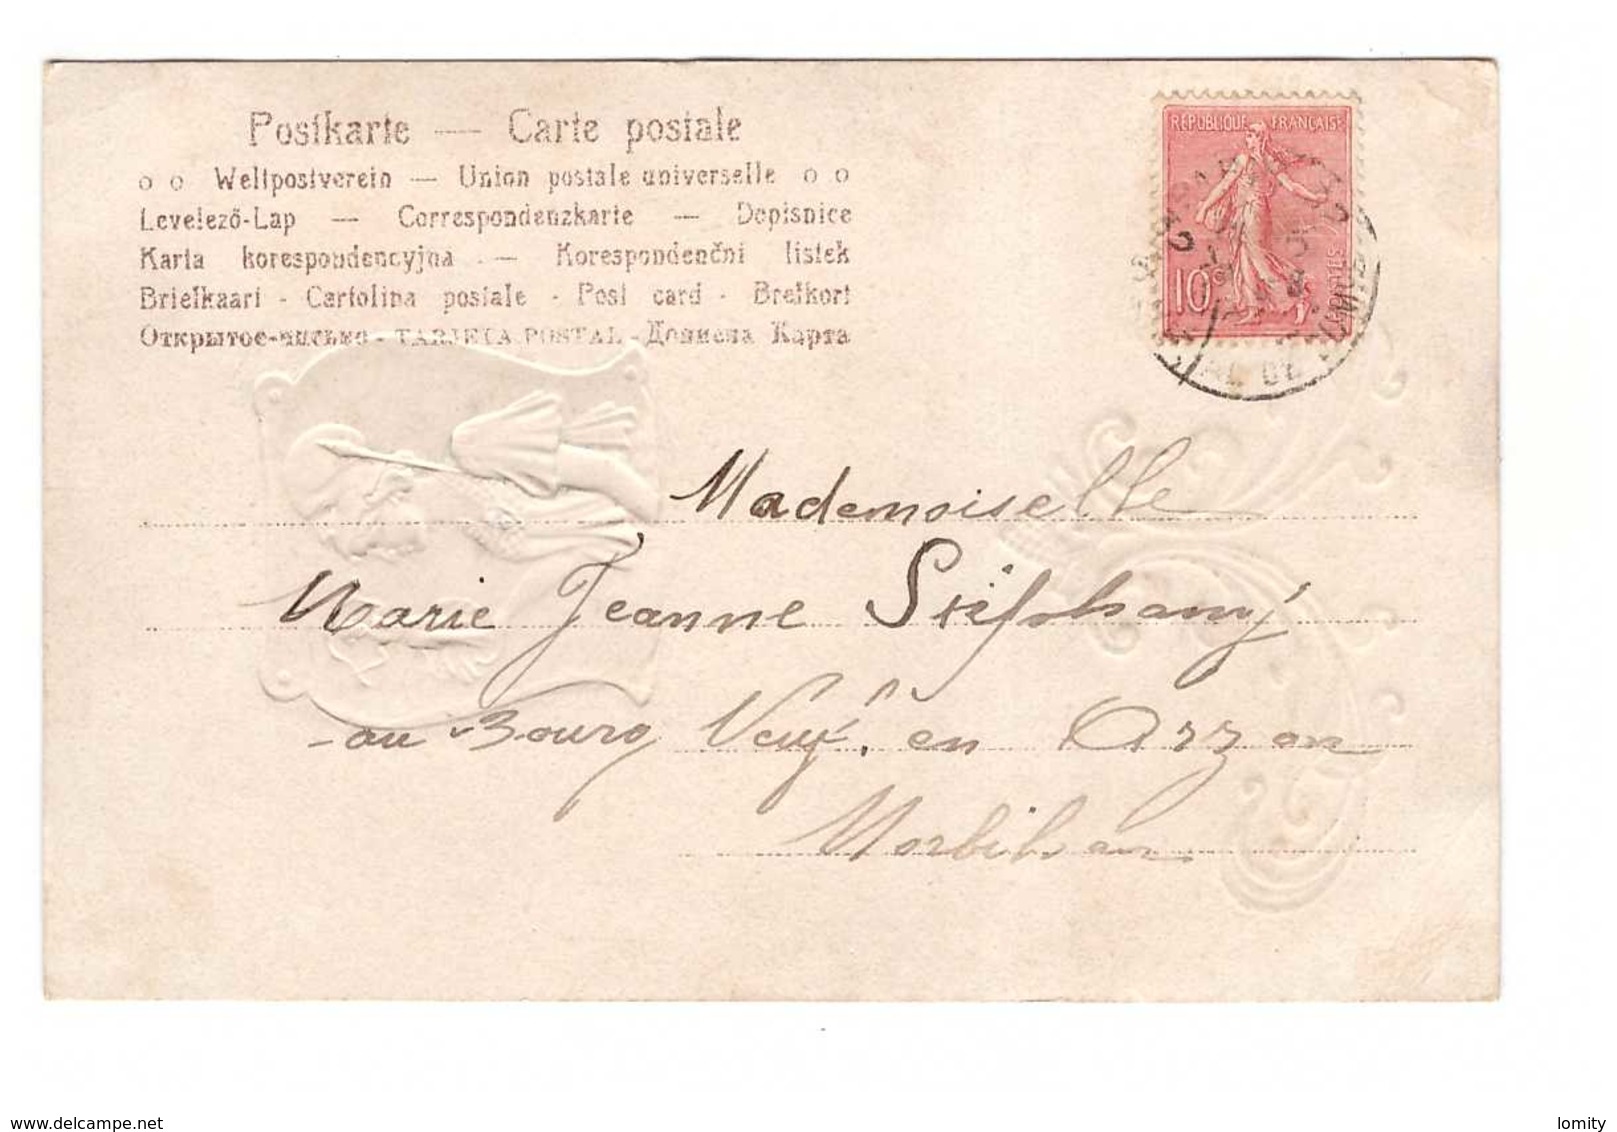 Postkarte — Carte postale
o o Weltpostverein — Union postale universelle o o
Levelező-Lap — Correspondenzkarte — Dopisnice
Karta korespondencyjna — Korespondenční listek
Briefkaart - Cartolina postale - Post card - Brefkort
Открытое-письмо - TARJETA POSTAL - Дописна Карта
REPUBLIQUE FRANÇAISE
10 c
POSTES
Mademoiselle
Marie Jeanne
au Bourg en Arzon
Morbihan
delcampe.net
lomity